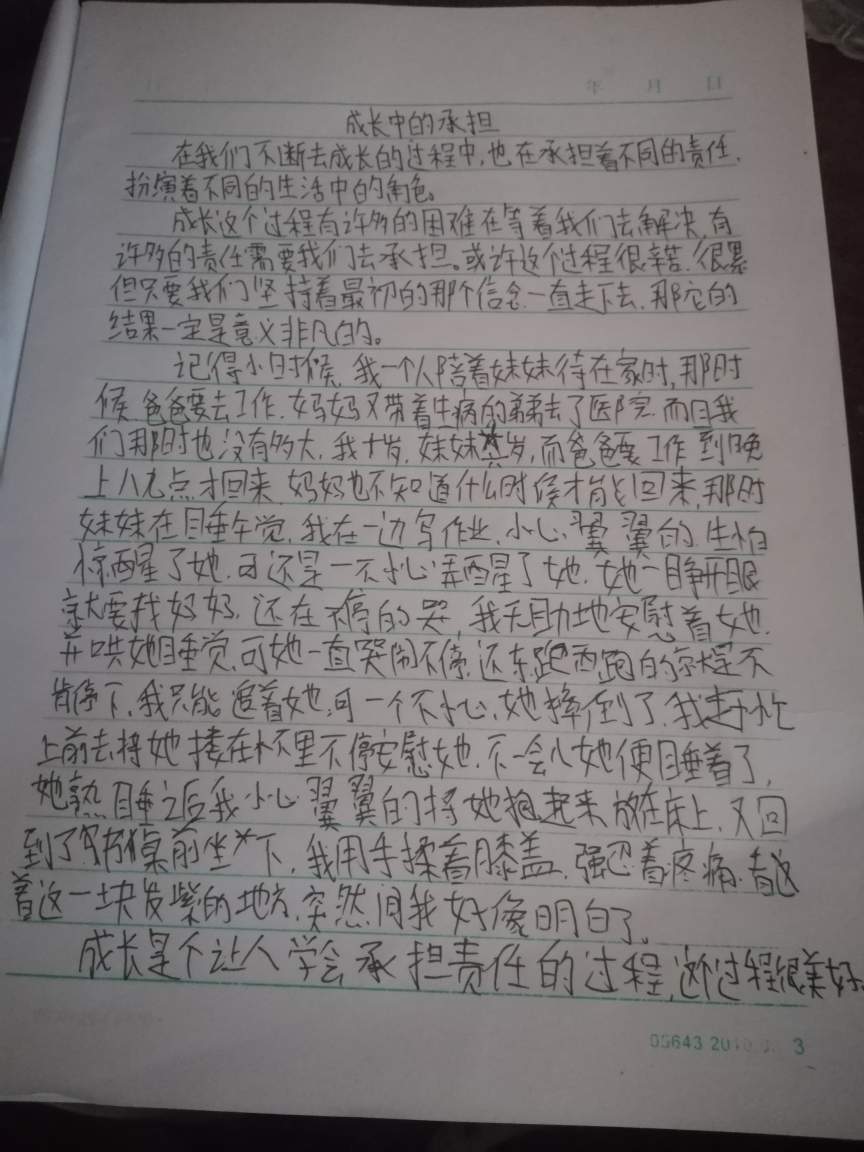 年 月 日
成长中的承担
在我们不断去成长的过程中,也在承担着不同的责任,
扮演着不同的生活中的角色。
成长这个过程有许多的困难在等着我们去解决,有
许多的责任需要我们去承担。或许这个过程很辛苦,很累
但只要我们坚持着最初的那个信念一直走下去,那它的
结果一定是意义非凡的。
记得小时候,我一个人陪着妹妹待在家时,那时
候爸爸要去工作,妈妈又带着生病的弟弟去了医院,而且我
们那时也没有多大,我十岁,妹妹岁,而爸爸要工作到晚
上八九点才回来,妈妈也不知道什么时候才能回来,那时
妹妹在睡午觉,我在一边写作业,小心翼翼的,生怕
惊醒了她,可还是一不小心弄醒了她,她一睁开眼
就要找妈妈,还在不停的哭,我无助地安慰着她,
并哄她睡觉,可她一直哭闹不停,还东跑西跑的就是不
肯停下,我只能追着她,可一个不小心,她摔倒了,我赶忙
上前去将她搂在怀里不停安慰她,不一会儿她便睡着了,
她熟睡之后我小心翼翼的将她抱起来放在床上,又回
到了书桌前坐下,我用手揉着膝盖,强忍着疼痛,看这
着这一块发紫的地方,突然间我好像明白了。
成长是个让人学会承担责任的过程,这个过程很美好。
05643 2010 3